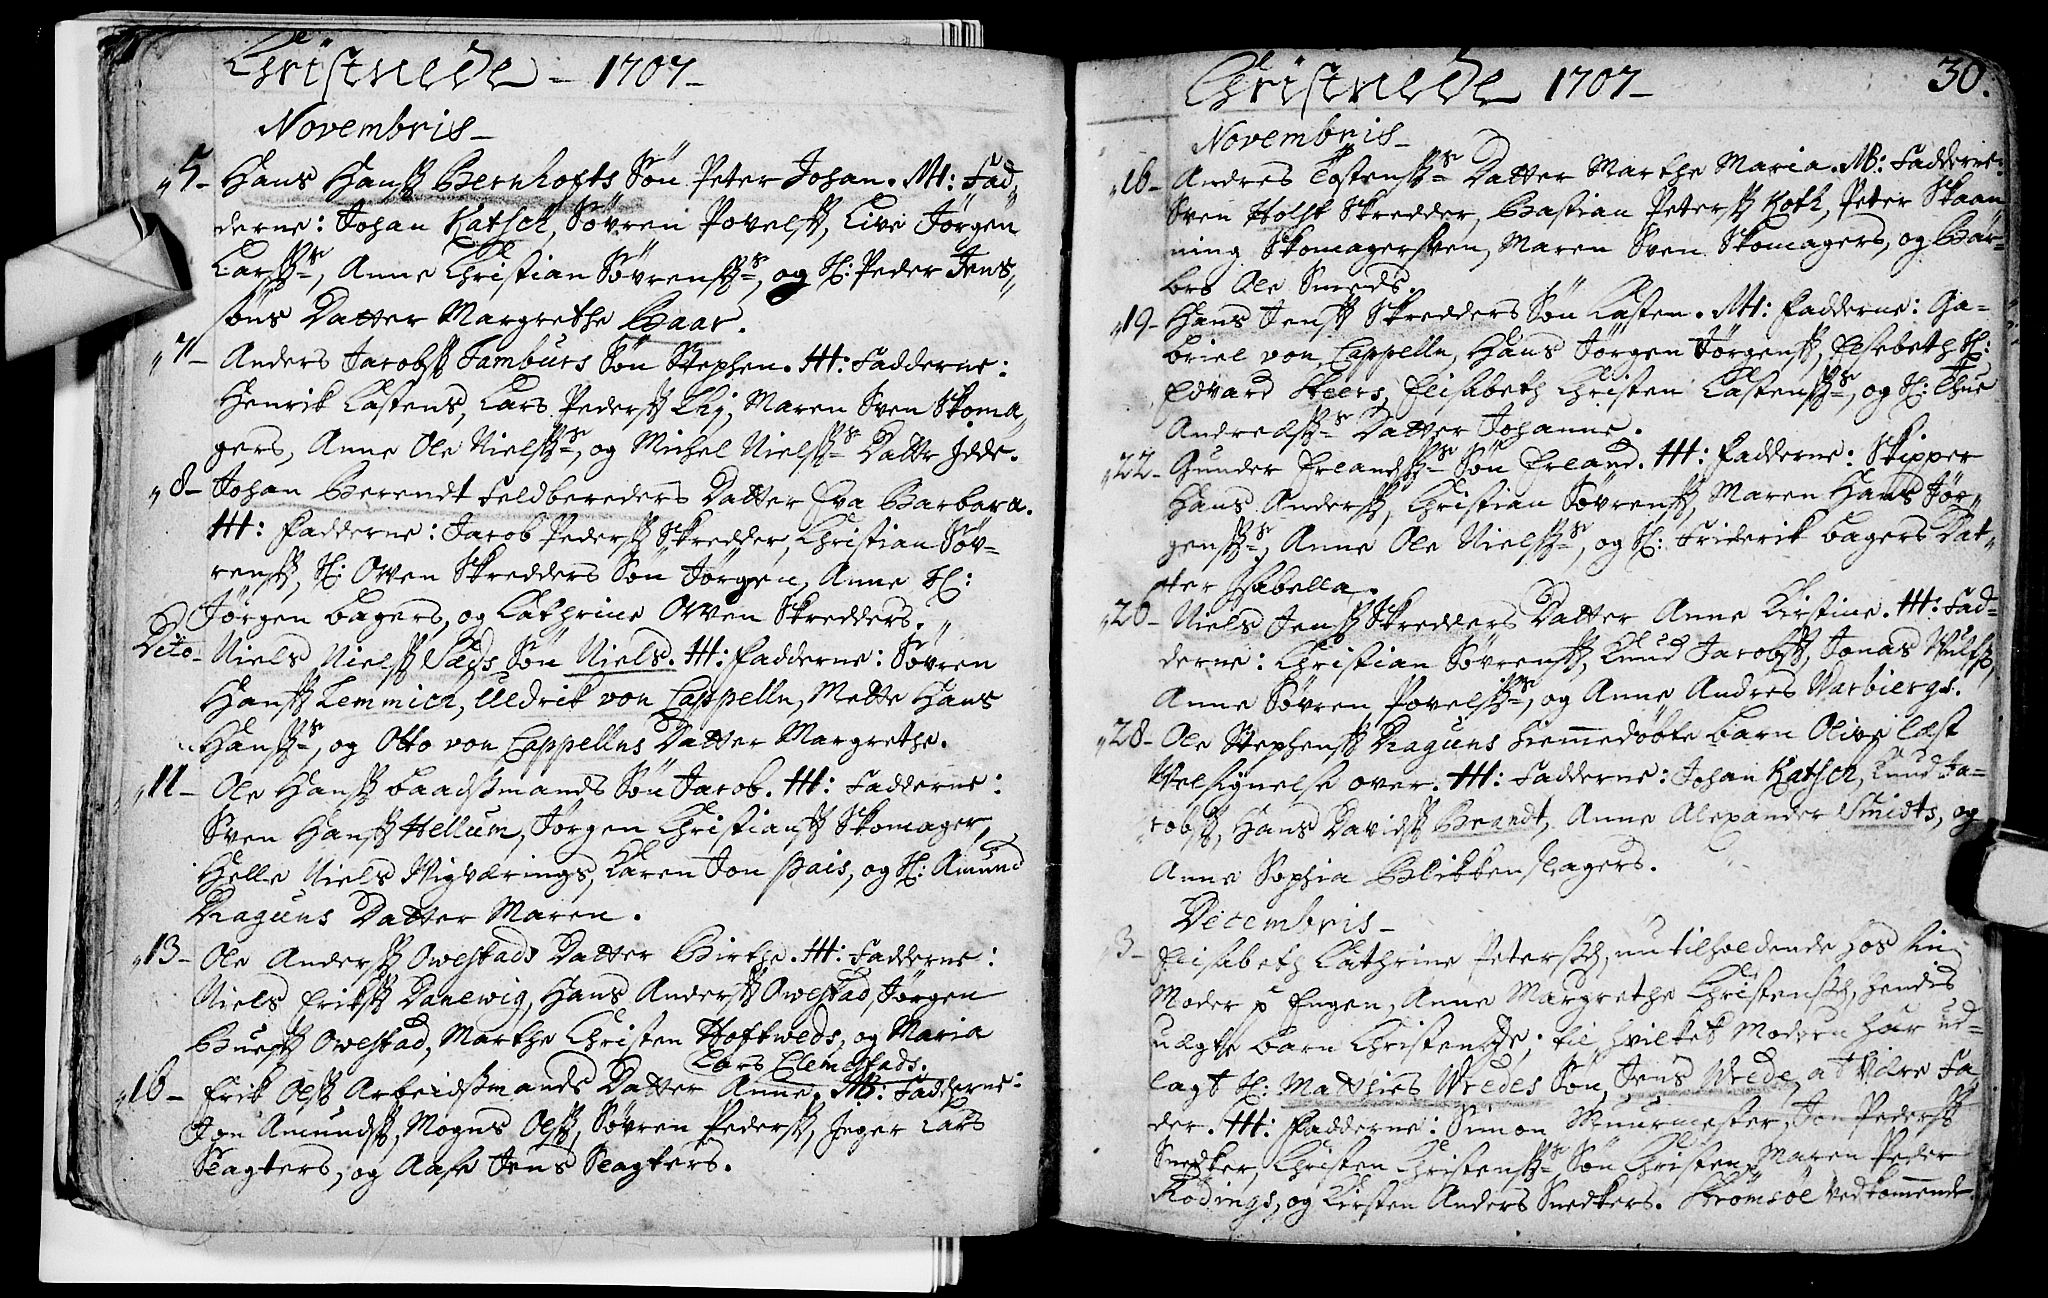 Christnede - 1707 -
Novembris -
5 - Hans Hanss: Bernhofts Søn Peter Johan. M: Fad,,
derne: Johan Katsch, Søvren Povelss:, Live Jørgen
Larss:s, Anne Christian Søvrenss:s, og Sl: Peder Jens,,
søns Datter Margrethe Baar.
7 - Anders Jacobss: Tamburs Søn Stephen. M: Fadderne:
Henrik Carstens, Lars Pederss: Lhj, Maren Sven Skoma,,
gers, Anne Ole Nielss:s, og Michel Nielss:s Dattr Idde.
8 - Johan Berendt Feldbereders Datter Eva Barbara.
M: Fadderne: Jacob Pederss: Skredder, Christian Søv-
renss:, Sl: Owen Skredders Søn Jørgen, Anne Sl:
Jørgen bagers, og Cathrine Owen Skredders.
Dito - Niels Nielss: Søn Niels. M: Fadderne: Søvren
Hanss: Lemmich, Uldrik von Cappelln, Mette Hans
Hanss:s, og Otto von Cappellns Datter Margrethe.
11 - Ole Hanss: baadsmands Søn Jacob. M: Fadderne:
Sven Hanss: Hellum, Jørgen Christianss: Skomager,
Helle Niels Wigværings, Karen Jon pais, og Sl: Amund
Draguns Datter Maren.
13 - Ole Anderss: Owestads Datter Birthe. M: Fadderne:
Niels Erikss: Danewig, Hans Anderss: Owestad, Jørgen
Buess: Owestad, Marthe Christen Hoftweds, og Maria
Lars Clemestads.
16 - Erik Olss: Arbeidsmands Datter Anne. M: Fadderne:
Jon Amundss:, Mogns Olss:, Søvren Pederss:, Inger Lars
Slagters, og Aase Jens Slagters.
Christnede 1707 -
30.
Novembris -
16 - Andres Tostenss:s Datter Marthe Maria. M: Fadderne:
Sven Holst Skredder, Bastian Peterss: Koth, Peter Skaan
ning Skomagersven, Maren Sven Skomagers, og Bar-
bro Ole Smeds.
19 - Hans Jenss: Skredders Søn Casten. M: Fadderne: Ga-
briel von Cappelln, Hans Jørgen Jørgenss:, Elsebeth Sl:
Edvard Steers, Elisabeth Christen Castenss:s, og Sl: Thue
Andreass:s Datter Johanne.
22 - Gunder Erlandss:s Søn Erland. M: Fadderne: Skipper
Hans Anderss:, Christian Søvrenss:, Maren Hans Jør,,
genss:s, Anne Ole Nielss:s, og Sl: Friderik bagers Dat,,
ter Isabella.
26 - Niels Jenss: Skredders Datter Anne Kirstine. M: Fad-
derne: Christian Søvrenss:, Knud Jacobss:, Jonas Wulfss:,
Anne Søvren Povelss:s, og Anne Andres Warbiergs.
28 - Ole Stephenss: Draguns hiemmedøbte barn Olive læst
Velsignelse over. M: Fadderne: Johan Katsch, Knud Ja-
cobss:, Hans Davidss: Brandt, Anne Alexander Smidts, og
Anne Sophia Blikkenslagers.
Decembris -
3 - Elisabeth Cathrine Peterssch, nu tilholdende hos sin
Moder p Engen, Anne Margrethe Christenssch, hendis
uægte barn Christen; til hvilket Modern har ud-
lagt Sl: Matthies Wredes Søn, Jens Wrede, at være Fa,,
der. M: Fadderne: Simon Muurmester, Jon Pederss:
Snedker, Christen Christenss:s Søn Christen, Maren Peder
Rødings, og Kirsten Anders Snedkers. Strømsøe vedkommende